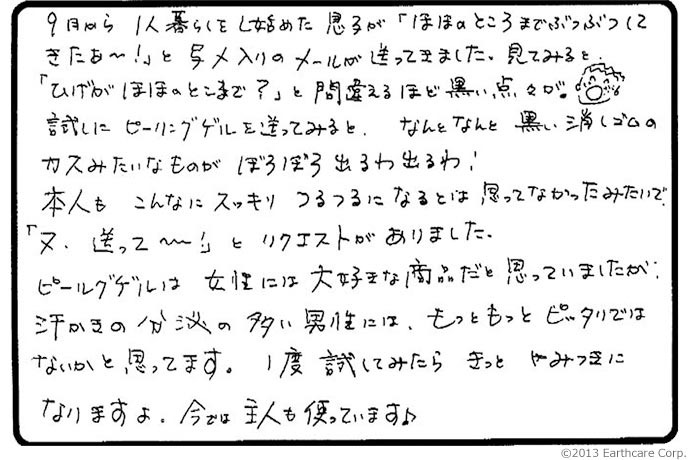 9月から 1人暮らしをし始めた 息子が「ほほのところまでぶつぶつして
きたぁ〜!」と 写メ入りの メールが 送ってきました。見てみると、
「ひげが ほほのとこまで?」と 間違えるほど 黒い点々が!
試しに ピーリングゲルを送ってみると、なんとなんと 黒い消しゴムの
カスみたいなものが ぼろぼろ 出るわ出るわ!
本人も こんなに スッキリ つるつるになるとは 思ってなかったみたいで、
「又、送って〜〜!」と リクエストが ありました。
ピールグゲルは 女性には 大好きな商品だと 思っていましたが、
汗かきの 分泌の 多い 男性には、もっともっと ピッタリでは
ないかと 思ってます。1度 試してみたら きっと やみつきに
なりますよ。今では 主人も 使っています♪
©2013 Earthcare Corp.